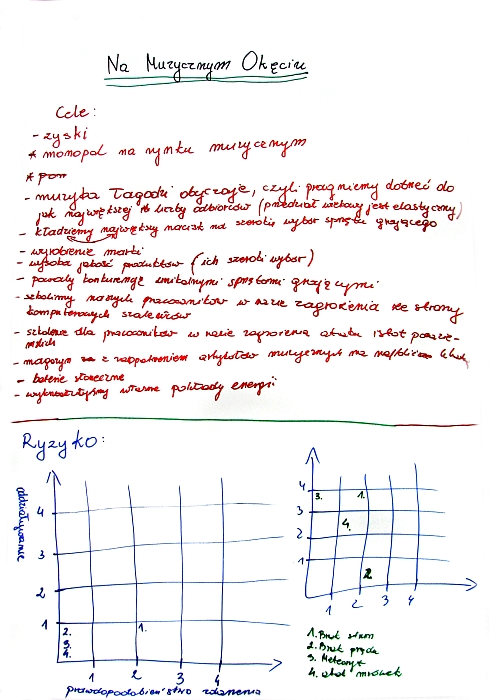 Na Muzycznym Okęciu
Cele:
- zyski
* monopol na rynku muzycznym
* pon
- muzyka łagodzi obyczaje, czyli pragniemy dotrzeć do
jak największej liczby odbiorców (przedział wiekowy jest elastyczny)
- kładziemy największy nacisk na szeroki wybór sprzętu grającego
- wyrobienie marki
- wysoka jakość produktów (ich szeroki wybór)
- konkurencję unikalnymi sprzętami grającymi
- szkolimy naszych pracowników w razie zagrożenia ze strony
komputerowych
- szkolenie dla pracowników w razie zagrożenia ataku istot poza
- magazyn z zaopatrzeniem artykułów muzycznych na
- baterie słoneczne
- własne pokłady energii
Ryzyko:
oddziaływanie
4
3
2
1
2.
3.
4.
1.
1
2
3
4
prawdopodobieństwo zdarzenia
4
3
2
1
3.
1.
4.
2
1
2
3
4
1. Brak
2. Brak prądu
3. Meteoryt
4. atak mrówek